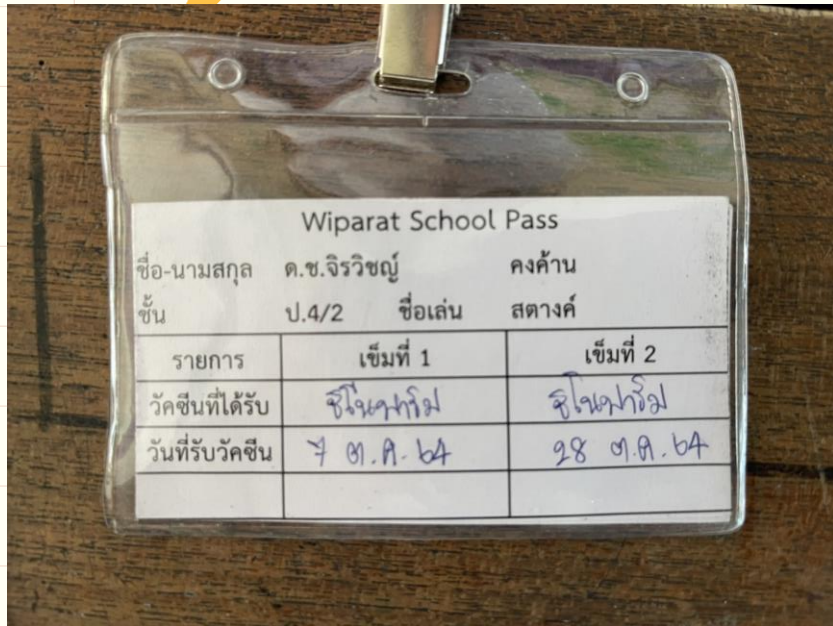 Wiparat School Pass
ชื่อ-นามสกุล ด.ช.จิรวิชญ์ คงค้าน
ชั้น ป.4/2 ชื่อเล่น สตางค์
รายการ เข็มที่ 1 เข็มที่ 2
วัคซีนที่ได้รับ ซิโนฟาร์ม ซิโนฟาร์ม
วันที่รับวัคซีน 7 ต.ค. 64 28 ต.ค. 64